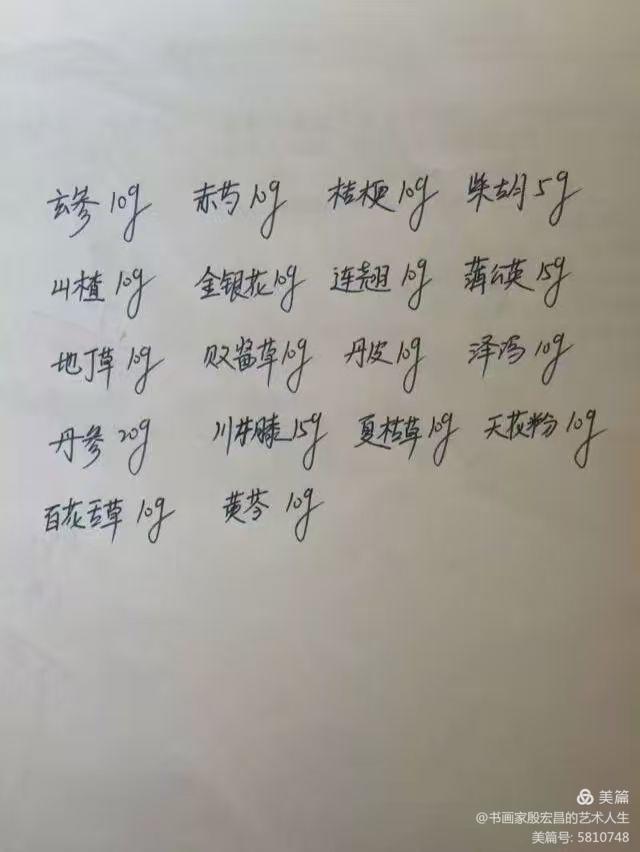 玄参10g 赤芍10g 桔梗10g 柴胡5g
山楂10g 金银花10g 连翘10g 蒲公英15g
地丁草10g 败酱草10g 丹皮10g 泽泻10g
丹参20g 川牛膝15g 夏枯草10g 天花粉10g
百花舌草10g 黄芩10g
美篇
@书画家殷宏昌的艺术人生
美篇号: 5810748